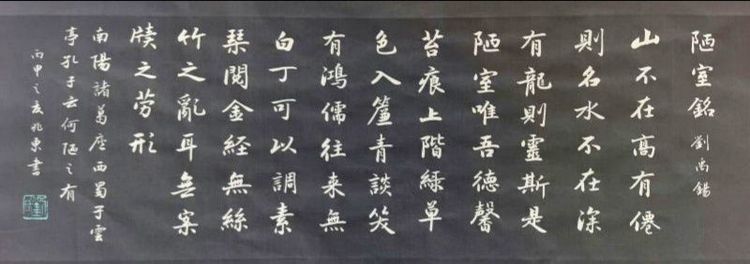 陋室銘 劉禹錫
山不在高有僊
則名水不在深
有龍則靈斯是
陋室唯吾德馨
苔痕上階緑草
色入簾青談笑
有鴻儒往来無
白丁可以調素
琴閲金経無絲
竹之亂耳無案
牘之劳形
南陽諸葛庐西蜀子雲
亭孔子云何陋之有
丙申之東書